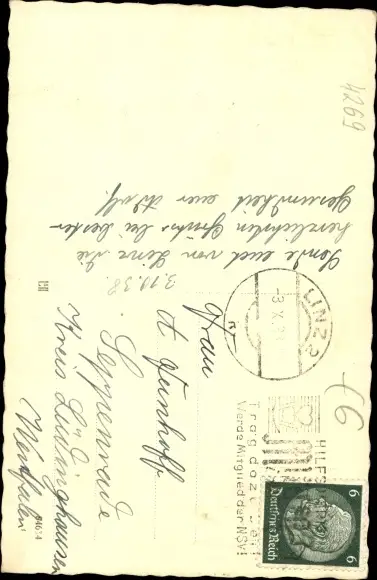 4269
Sende euch von Linz die
herzlichsten Grüße bei bester
Gesundheit euer Adolf.
3.10.38.
LINZ 2
-3.X.3
HILF
Werde Mitglied der NSV!
6 6
Deutsches Reich
+6
Frau
A. Funhoff
Seppenrade
Kreis Lüdinghausen
Westfalen